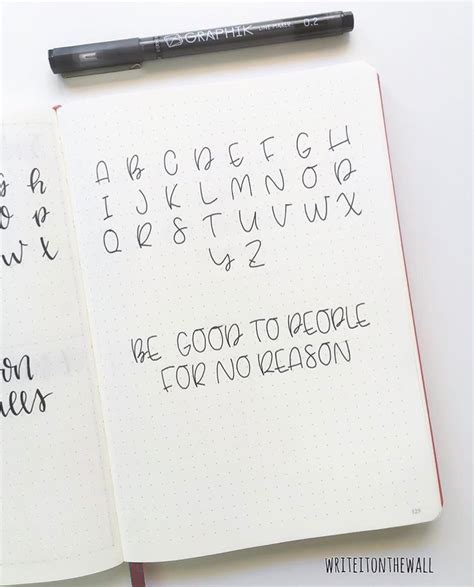 GRAPHIK LINE MAKER 0.2
A B C D E F G H
I J K L M N O P
Q R S T U V W X
Y Z
BE GOOD TO PEOPLE
FOR NO REASON
g h
o p
w x
on
WRITEITONTHEWALL